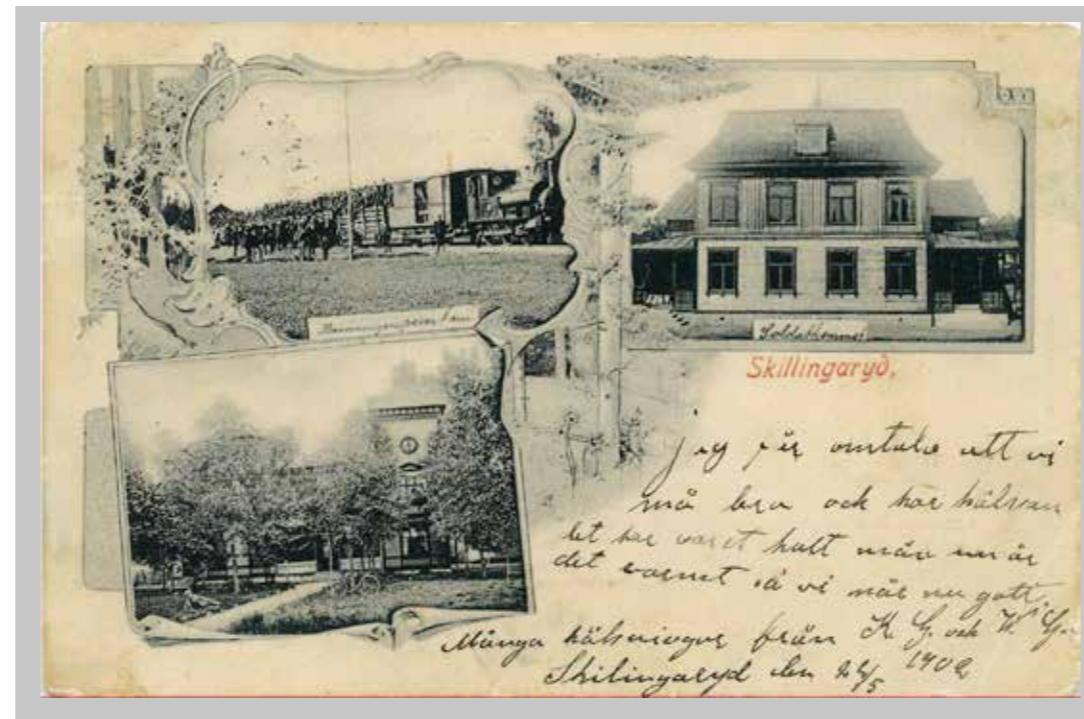 Soldathemmet
Skillingaryd.
jag får omtala att vi
må bra och har hälsan
det har varit kalt män nu är
det varmt så vi mår nu gott
Många hälsningar från K. G. och W. G.
Skilingaryd den 5 1902